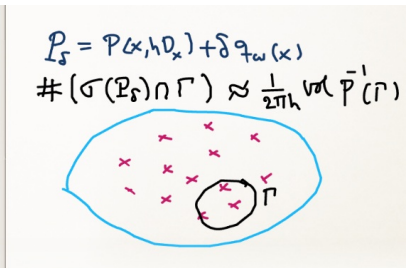 P_δ = P(x,hD_x) + δ q_ω(x)
#(σ(P_δ)∩Γ) ≈ 1/2πh vol p⁻¹(Γ)
Γ